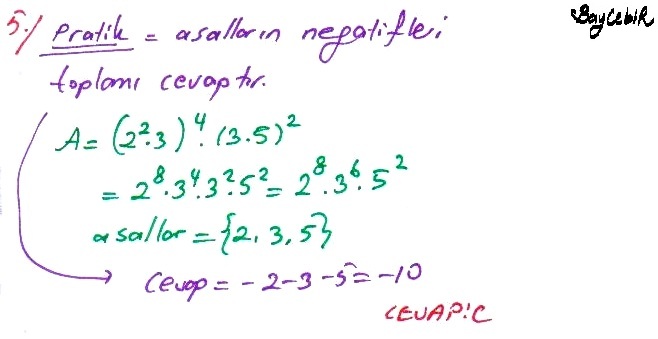 BayCebiR
5-/ Pratik = asalların negatifleri
toplamı cevaptır.
A = (2².3)⁴.(3.5)²
= 2⁸.3⁴.3².5² = 2⁸.3⁶.5²
asallar = {2,3,5}
Cevap = -2-3-5 = -10
CEVAP:C